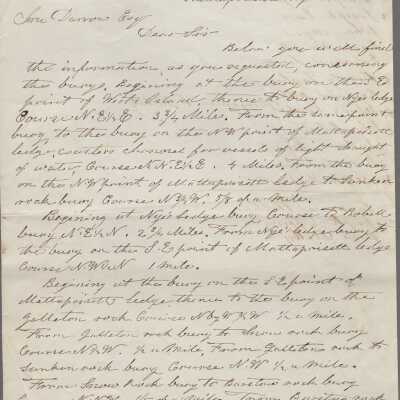 Darrow Esq
Dear Sir
Below you will find
the information, as you requested, concerning
the buoys. Begining at the buoy on the East
point of West Island, thence to buoy on Nyes ledge
Course N.E½E. 3¾ Miles. From the same point
buoy to the buoy on the N.W point of Mattapoisett
ledge, eastern channel for vessels of light draught
of water, Course N.N.E½E. 4 Miles, From the buoy
on the N.W point of Mattapoisett ledge to Sunken
rock buoy Course N¾W. ⅞ of a mile.
Begining at Nyes Ledge buoy Course to
buoy N.E½N. 2¾ Miles. From Nyes ledge buoy to
the buoy on the S.E point of Mattapoisett ledge
Course NWbN 1 mile.
Begining at the buoy on the S.E point of
Mattapoisett ledge thence to the buoy on the
Gallatin rock Course NbW¾W ½ a Mile.
From Gallatin rock buoy to rock buoy
Course N½W. ½ a Mile, From Gallatins rock to
Sunken rock buoy Course N.W ½ a mile.
From rock buoy to Barstow rock buoy
Course of a Mile, From Barstow rock